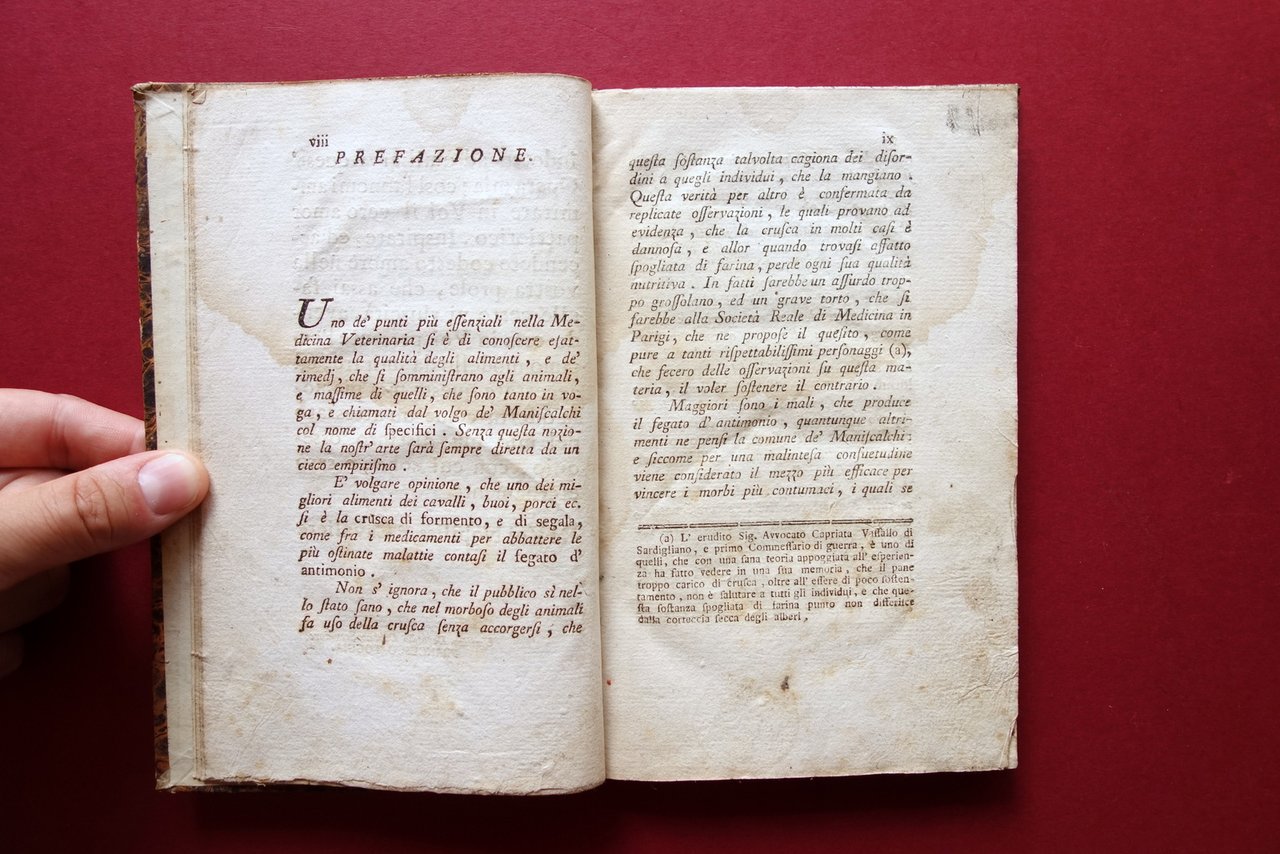 viii
PREFAZIONE.
Uno de' punti più eſſenziali nella Me-
dicina Veterinaria ſi è di conoſcere eſat-
tamente la qualità degli alimenti, e de'
rimedj, che ſi ſomminiſtrano agli animali,
e maſſime di quelli, che ſono tanto in vo-
ga, e chiamati dal volgo de' Maniſcalchi
col nome di ſpecifici. Senza queſta nozio-
ne la noſtr' arte ſarà ſempre diretta da un
cieco empiriſmo.
E' volgare opinione, che uno dei mi-
gliori alimenti dei cavalli, buoi, porci ec.
ſi è la cruſca di formento, e di ſegala,
come fra i medicamenti per abbattere le
più oſtinate malattie contaſi il fegato d'
antimonio.
Non s' ignora, che il pubblico sì nel-
lo ſtato ſano, che nel morboſo degli animali
fa uſo della cruſca ſenza accorgerſi, che
ix
queſta ſoſtanza talvolta cagiona dei diſor-
dini a quegli individui, che la mangiano.
Queſta verità per altro è confermata da
replicate oſſervazioni, le quali provano ad
evidenza, che la cruſca in molti caſi è
dannoſa, e allor quando trovaſi affatto
ſpogliata di farina, perde ogni ſua qualità
nutritiva. In fatti ſarebbe un aſſurdo trop-
po groſſolano, ed un grave torto, che ſi
farebbe alla Società Reale di Medicina in
Parigi, che ne propoſe il queſito, come
pure a tanti riſpettabiliſſimi perſonaggi (a),
che fecero delle oſſervazioni ſu queſta ma-
teria, il voler ſoſtenere il contrario.
Maggiori ſono i mali, che produce
il fegato d' antimonio, quantunque altri-
menti ne penſi la comune de' Maniſcalchi:
e ſiccome per una malinteſa conſuetudine
viene conſiderato il mezzo più efficace per
vincere i morbi più contumaci, i quali ſe
(a) L' erudito Sig. Avvocato Capriata Vaſſallo di
Sardigliano, e primo Commeſſario di guerra, è uno di
quelli, che con una ſana teoria appoggiata all' eſperien-
za ha fatto vedere in una ſua memoria, che il pane
troppo carico di cruſca, oltre all' eſſere di poco ſoſten-
tamento, non è ſalutare a tutti gli individui, e che que-
ſta ſoſtanza ſpogliata di farina punto non differiſce
dalla corteccia ſecca degli alberi.